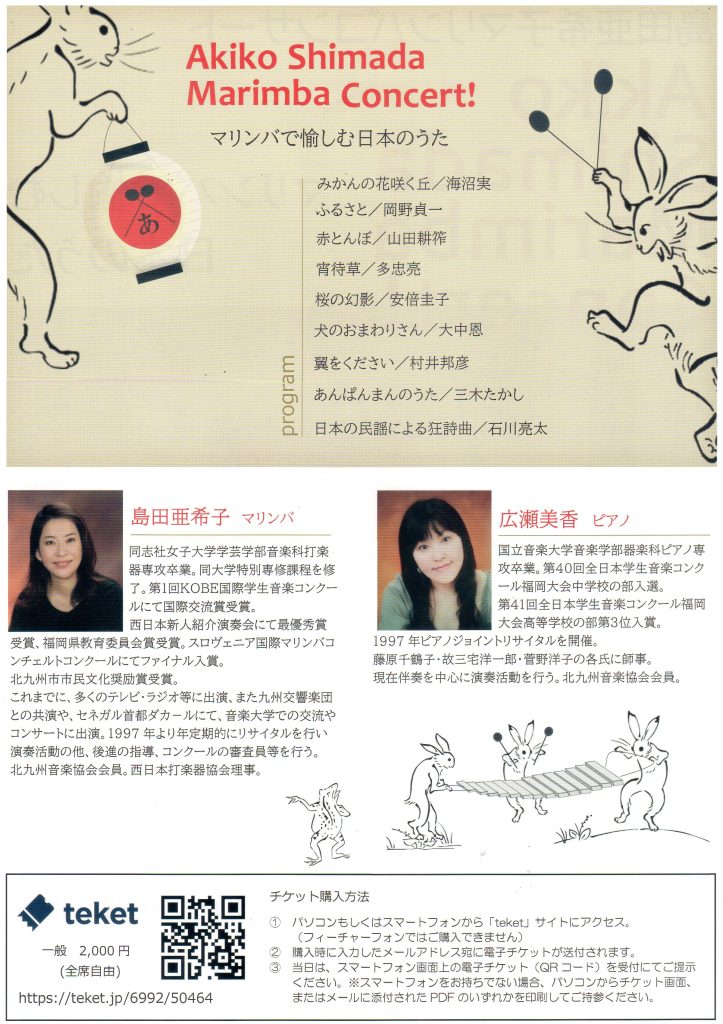 Akiko Shimada
Marimba Concert!
マリンバで愉しむ日本のうた
みかんの花咲く丘／海沼実
ふるさと／岡野貞一
赤とんぼ／山田耕筰
宵待草／多忠亮
桜の幻影／安倍圭子
犬のおまわりさん／大中恩
翼をください／村井邦彦
あんぱんまんのうた／三木たかし
日本の民謡による狂詩曲／石川亮太
program
あ
島田亜希子 マリンバ
同志社女子大学学芸学部音楽科打楽
器専攻卒業。同大学特別専修課程を修
了。第1回KOBE国際学生音楽コンクー
ルにて国際交流賞受賞。
西日本新人紹介演奏会にて最優秀賞
受賞、福岡県教育委員会賞受賞。スロヴェニア国際マリンバコ
ンチェルトコンクールにてファイナル入賞。
北九州市市民文化奨励賞受賞。
これまでに、多くのテレビ・ラジオ等に出演、また九州交響楽団
との共演や、セネガル首都ダカールにて、音楽大学での交流や
コンサートに出演。1997年より年定期的にリサイタルを行い
演奏活動の他、後進の指導、コンクールの審査員等を行う。
北九州音楽協会会員。西日本打楽器協会理事。
広瀬美香 ピアノ
国立音楽大学音楽学部器楽科ピアノ専
攻卒業。第40回全日本学生音楽コンク
ール福岡大会中学校の部入選。
第41回全日本学生音楽コンクール福岡
大会高等学校の部第3位入賞。
1997年ピアノジョイントリサイタルを開催。
藤原千鶴子・故三宅洋一郎・菅野洋子の各氏に師事。
現在伴奏を中心に演奏活動を行う。北九州音楽協会会員。
teket
一般 2,000円
(全席自由)
https://teket.jp/6992/50464
チケット購入方法
① パソコンもしくはスマートフォンから「teket」サイトにアクセス。
（フィーチャーフォンではご購入できません）
② 購入時に入力したメールアドレス宛に電子チケットが送付されます。
③ 当日は、スマートフォン画面上の電子チケット（QRコード）を受付にてご提示
ください。※スマートフォンをお持ちでない場合、パソコンからチケット画面、
またはメールに添付されたPDFのいずれかを印刷してご持参ください。